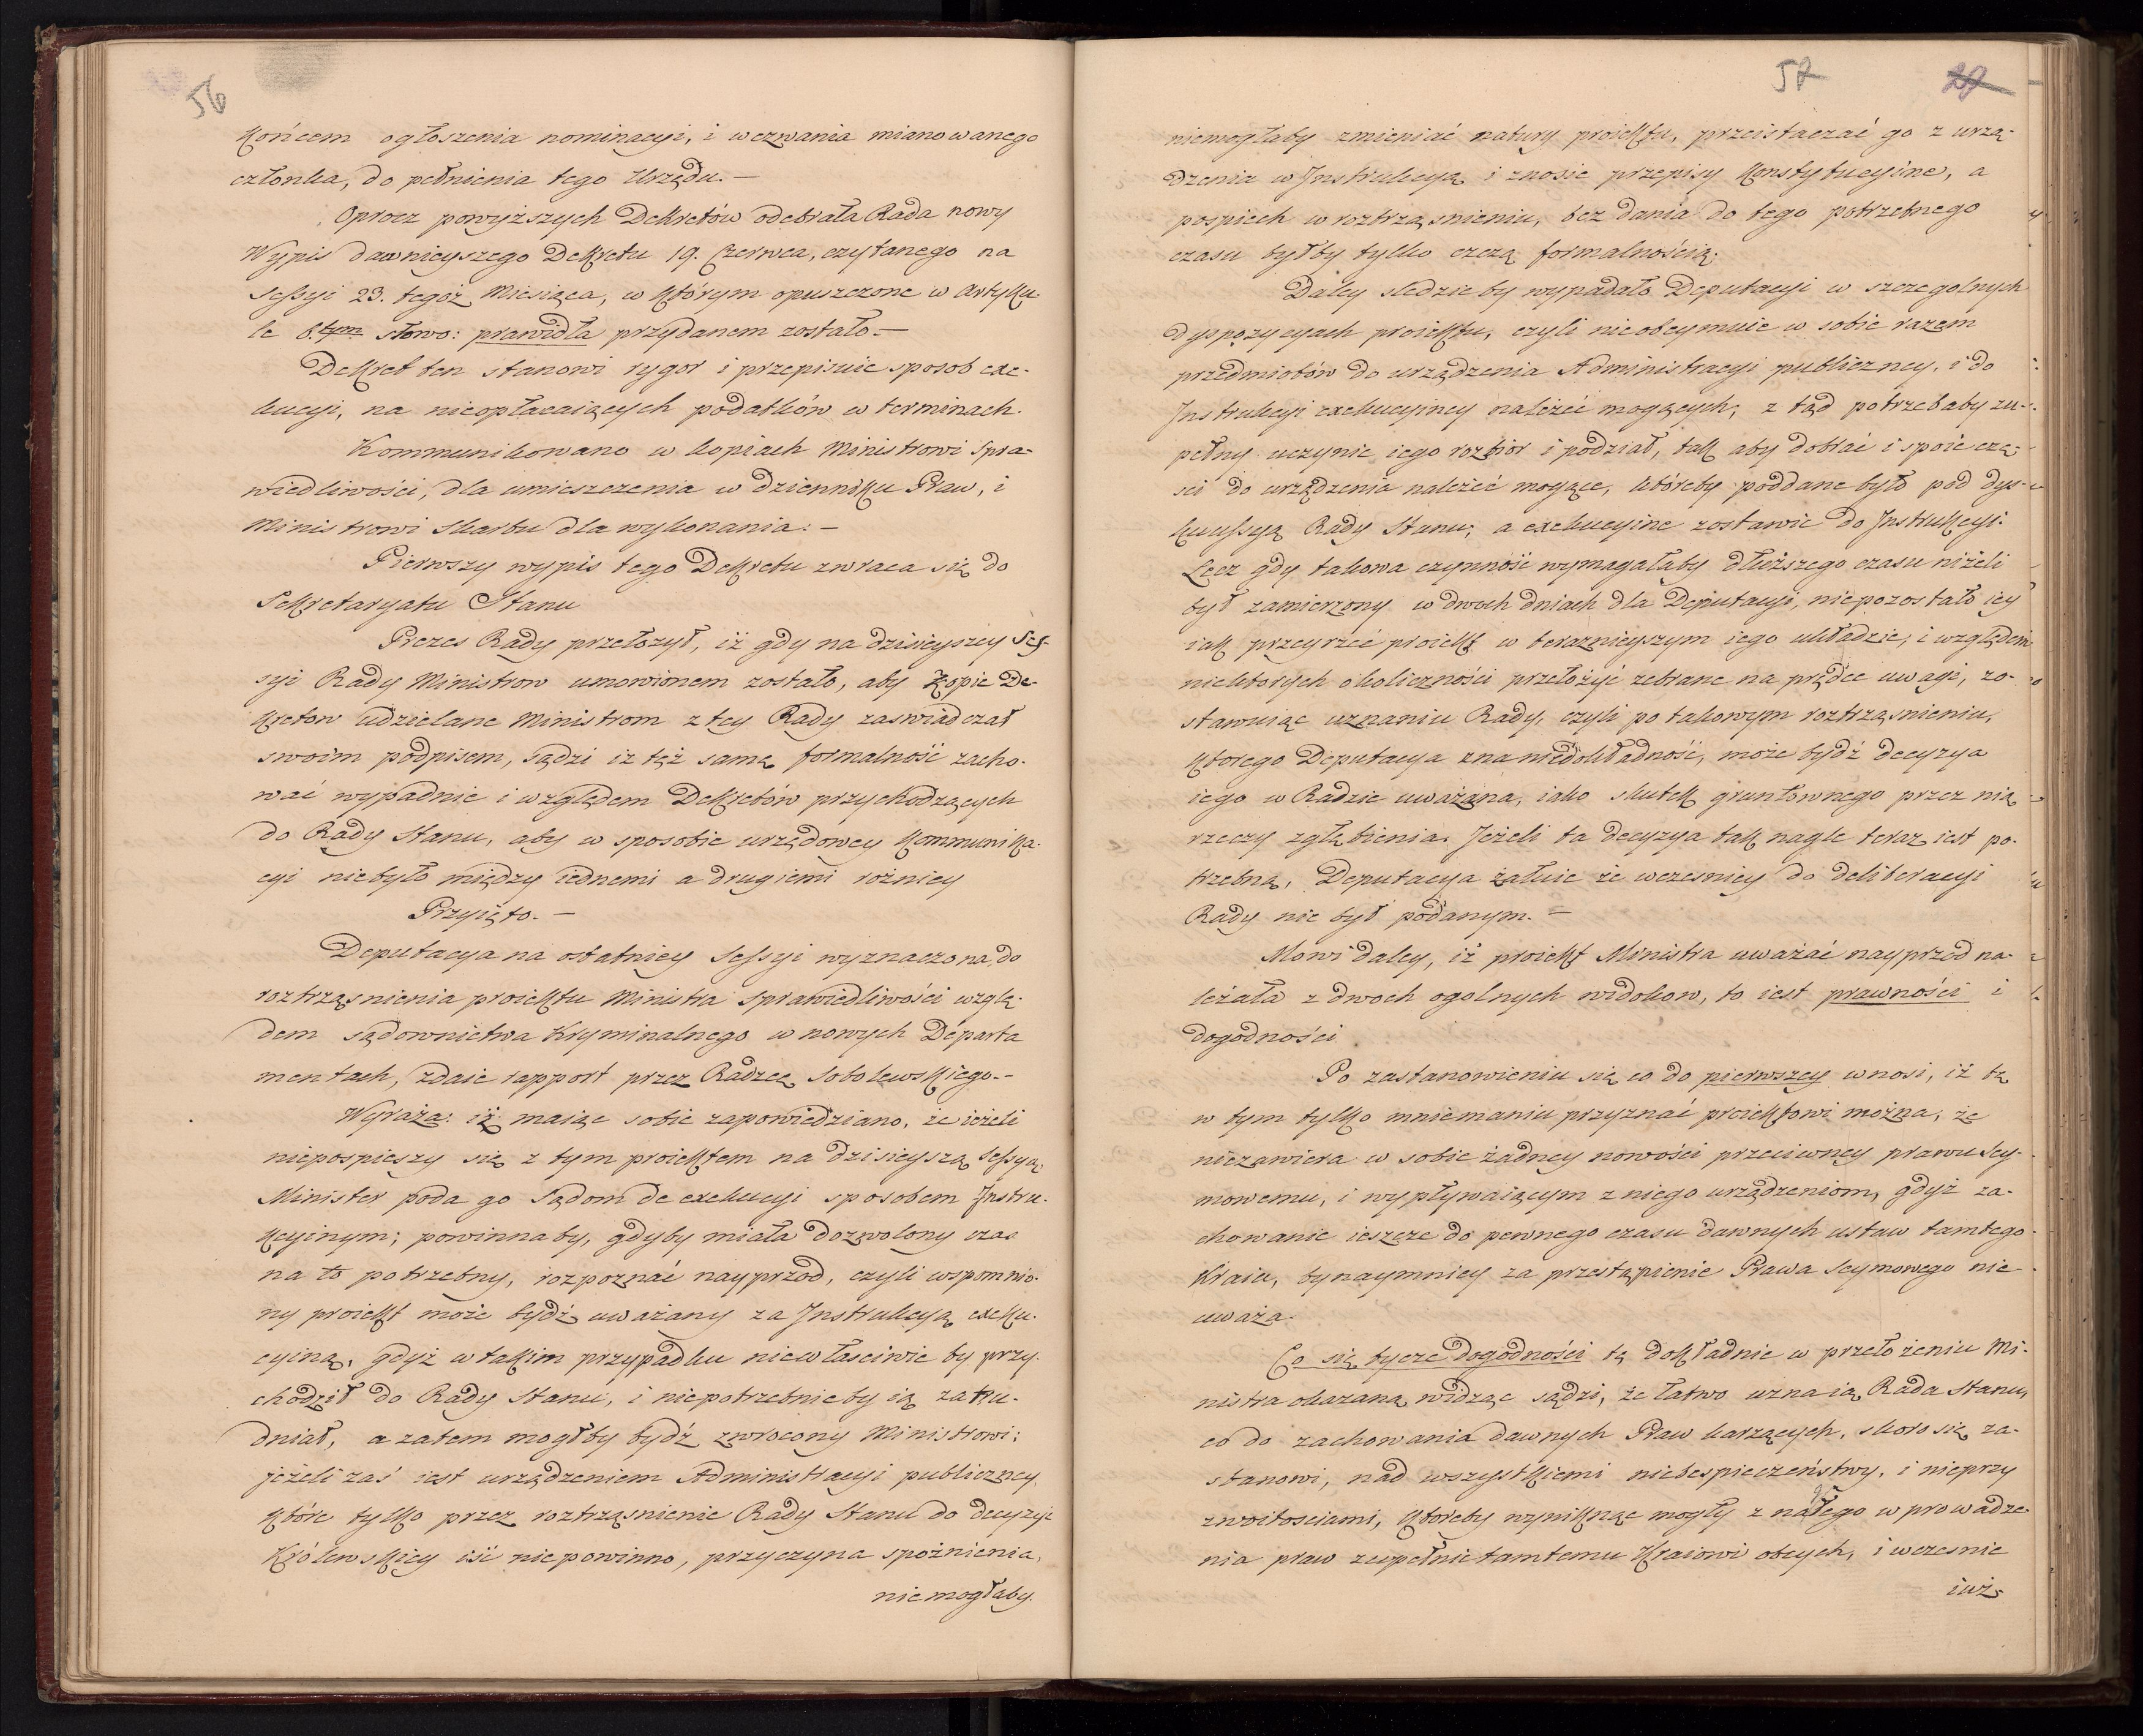 56
końcem ogłoszenia nominacyi, i wezwania mianowanego
członka, do pełnienia tego Urzędu. —
Oprocz powyższych Dekretów odebrała Rada nowy
Wypis dawnieyszego Dekretu 19. Czerwca, czytanego na
Sessyi 23. tegoż Miesiąca, w którym opuszczone w Artyku-
le 6.tym słowo: prawidła przydanem zostało. —
Dekret ten stanowi rygor i przepisuie sposob exe-
kucyi, na nieopłacaiących podatków w terminach.
Kommunikowano w kopiach Ministrowi Spra-
wiedliwości, dla umieszczenia w dzienniku Praw, i
Ministrowi Skarbu dla wykonania. —
Pierwszy wypis tego Dekretu zwraca się do
Sekretaryatu Stanu
Prezes Rady przełozył, iż gdy na dzisieyszey Ses-
syi Rady Ministrow umowionem zostało, aby kopie De-
kretow udzielane Ministrom z tey Rady zaswiadczał
swoim podpisem, sądzi iz też samą formalność zacho-
wać wypadnie i względem Dekretów przychodzących
do Rady Stanu, aby w sposobie urzędowey kommunika-
cyi niebyło między iednemi a drugiemi rożnicy
Przyięto. —
Deputacya na ostatniey Sessyi wyznaczona, do
roztrząsnienia proiektu Ministra Sprawiedliwości wzglę-
dem sądownictwa Kryminalnego w nowych Departa
mentach, zdaie rapport przez Radzcę Sobolewskiego. -
Wyraża: iż maiąc sobie zapowiedziano, że ieżeli
niepospieszy się z tym proiektem na dzisieyszą Sessyą
Minister poda go Sądom de exekucyi sposobem Instru-
kcyinym; powinnaby, gdyby miała dozwolony czas
na to potrzebny, rozpoznać nayprzod, czyli wspomnio-
ny proiekt może bydź uważany za Instrukcyą exeku-
cyiną, gdyż w takim przypadku niewłasciwie by przy-
chodził do Rady Stanu, i niepotrzebnie by ią zatru-
dniał, a zatem mogłby bydź zwrocony Ministrowi;
jeżeli zaś iest urządzeniem Administracyi publiczney,
które tylko przez roztrząsnienie Rady Stanu do decyzyi
Królewskiey iść niepowinno, przyczyna spoznienia,
niemogłaby.
57 29
niemogłaby zmieniać natury proiektu, przeistaczać go z urzą-
dzenia w Instrukcyą i znosic przepisy Konstytucyine, a
pospiech w roztrząsnieniu, bez dania do tego potrzebnego
czasu byłby tylko czczą formalnością.
Daley sledzic by wypadało Deputacyi w szczegolnych
dyspozycyach proiektu, czyli nieobeymuie w sobie razem
przedmiotów do urządzenia Administracyi publiczney, i do
Instrukcyi exekucyiney należeć mogących, z tąd potrzebaby zu-
pełny uczynic iego rozbior i podział, tak aby dobrać i spoić czę-
sci do urządzenia należeć mogące, któreby poddane było pod dys-
kussyą Rady Stanu; a exekucyine zostawic do Instrukcyi.
Lecz gdy takowa czynność wymagałaby dłuższego czasu niżeli
był zamierzony w dwoch dniach dla Deputacyi, niepozostało iey
iak przeyrzeć proiekt w terazniejszym iego układzie, i względem
niektorych okoliczności przełożyć zebrane na prędce uwagi, zo-
stawuiąc uznaniu Rady, czyli po takowym roztrząsnieniu,
ktorego Deputacya zna niedokładność, może bydź decyzya
iego w Radzie uważana, iako skutek gruntownego przez nią
rzeczy zgłębienia. Jeżeli ta decyzya tak nagle teraz iest po-
trzebną, Deputacya żałuie że wczesniey do deliberacyi
Rady nie był podanym. —
Mowi daley, iż proiekt Ministra uważać nayprzod na-
leżała z dwoch ogolnych widokow, to iest prawności i
dogodności.
Po zastanowieniu się co do pierwszey wnosi, iż tę
w tym tylko mniemaniu przyznać proiektowi można, że
niezawiera w sobie żadney nowości przeciwney prawu Sey-
mowemu, i wypływaiącym z niego urządzeniom, gdyż za-
chowanie ieszcze do pewnego czasu dawnych ustaw tamtego
Kraiu, bynaymniey za przestąpienie Prawa Seymowego nie
uważa.
Co się tycze dogodności tę dokładnie w przełożeniu Mi-
nistra okazaną widząc sądzi, że łatwo uzna ią Rada Stanu,
co do zachowania dawnych Praw karzących, skoro się za-
stanowi, nad wszystkiemi niebespieczeństwy, i nieprzy
zwoitosciami, ktoreby wyniknąc mogły z nagłego wprowadze-
nia praw zupełnie tamtemu Kraiowi obcych, i wczesnie
iuż